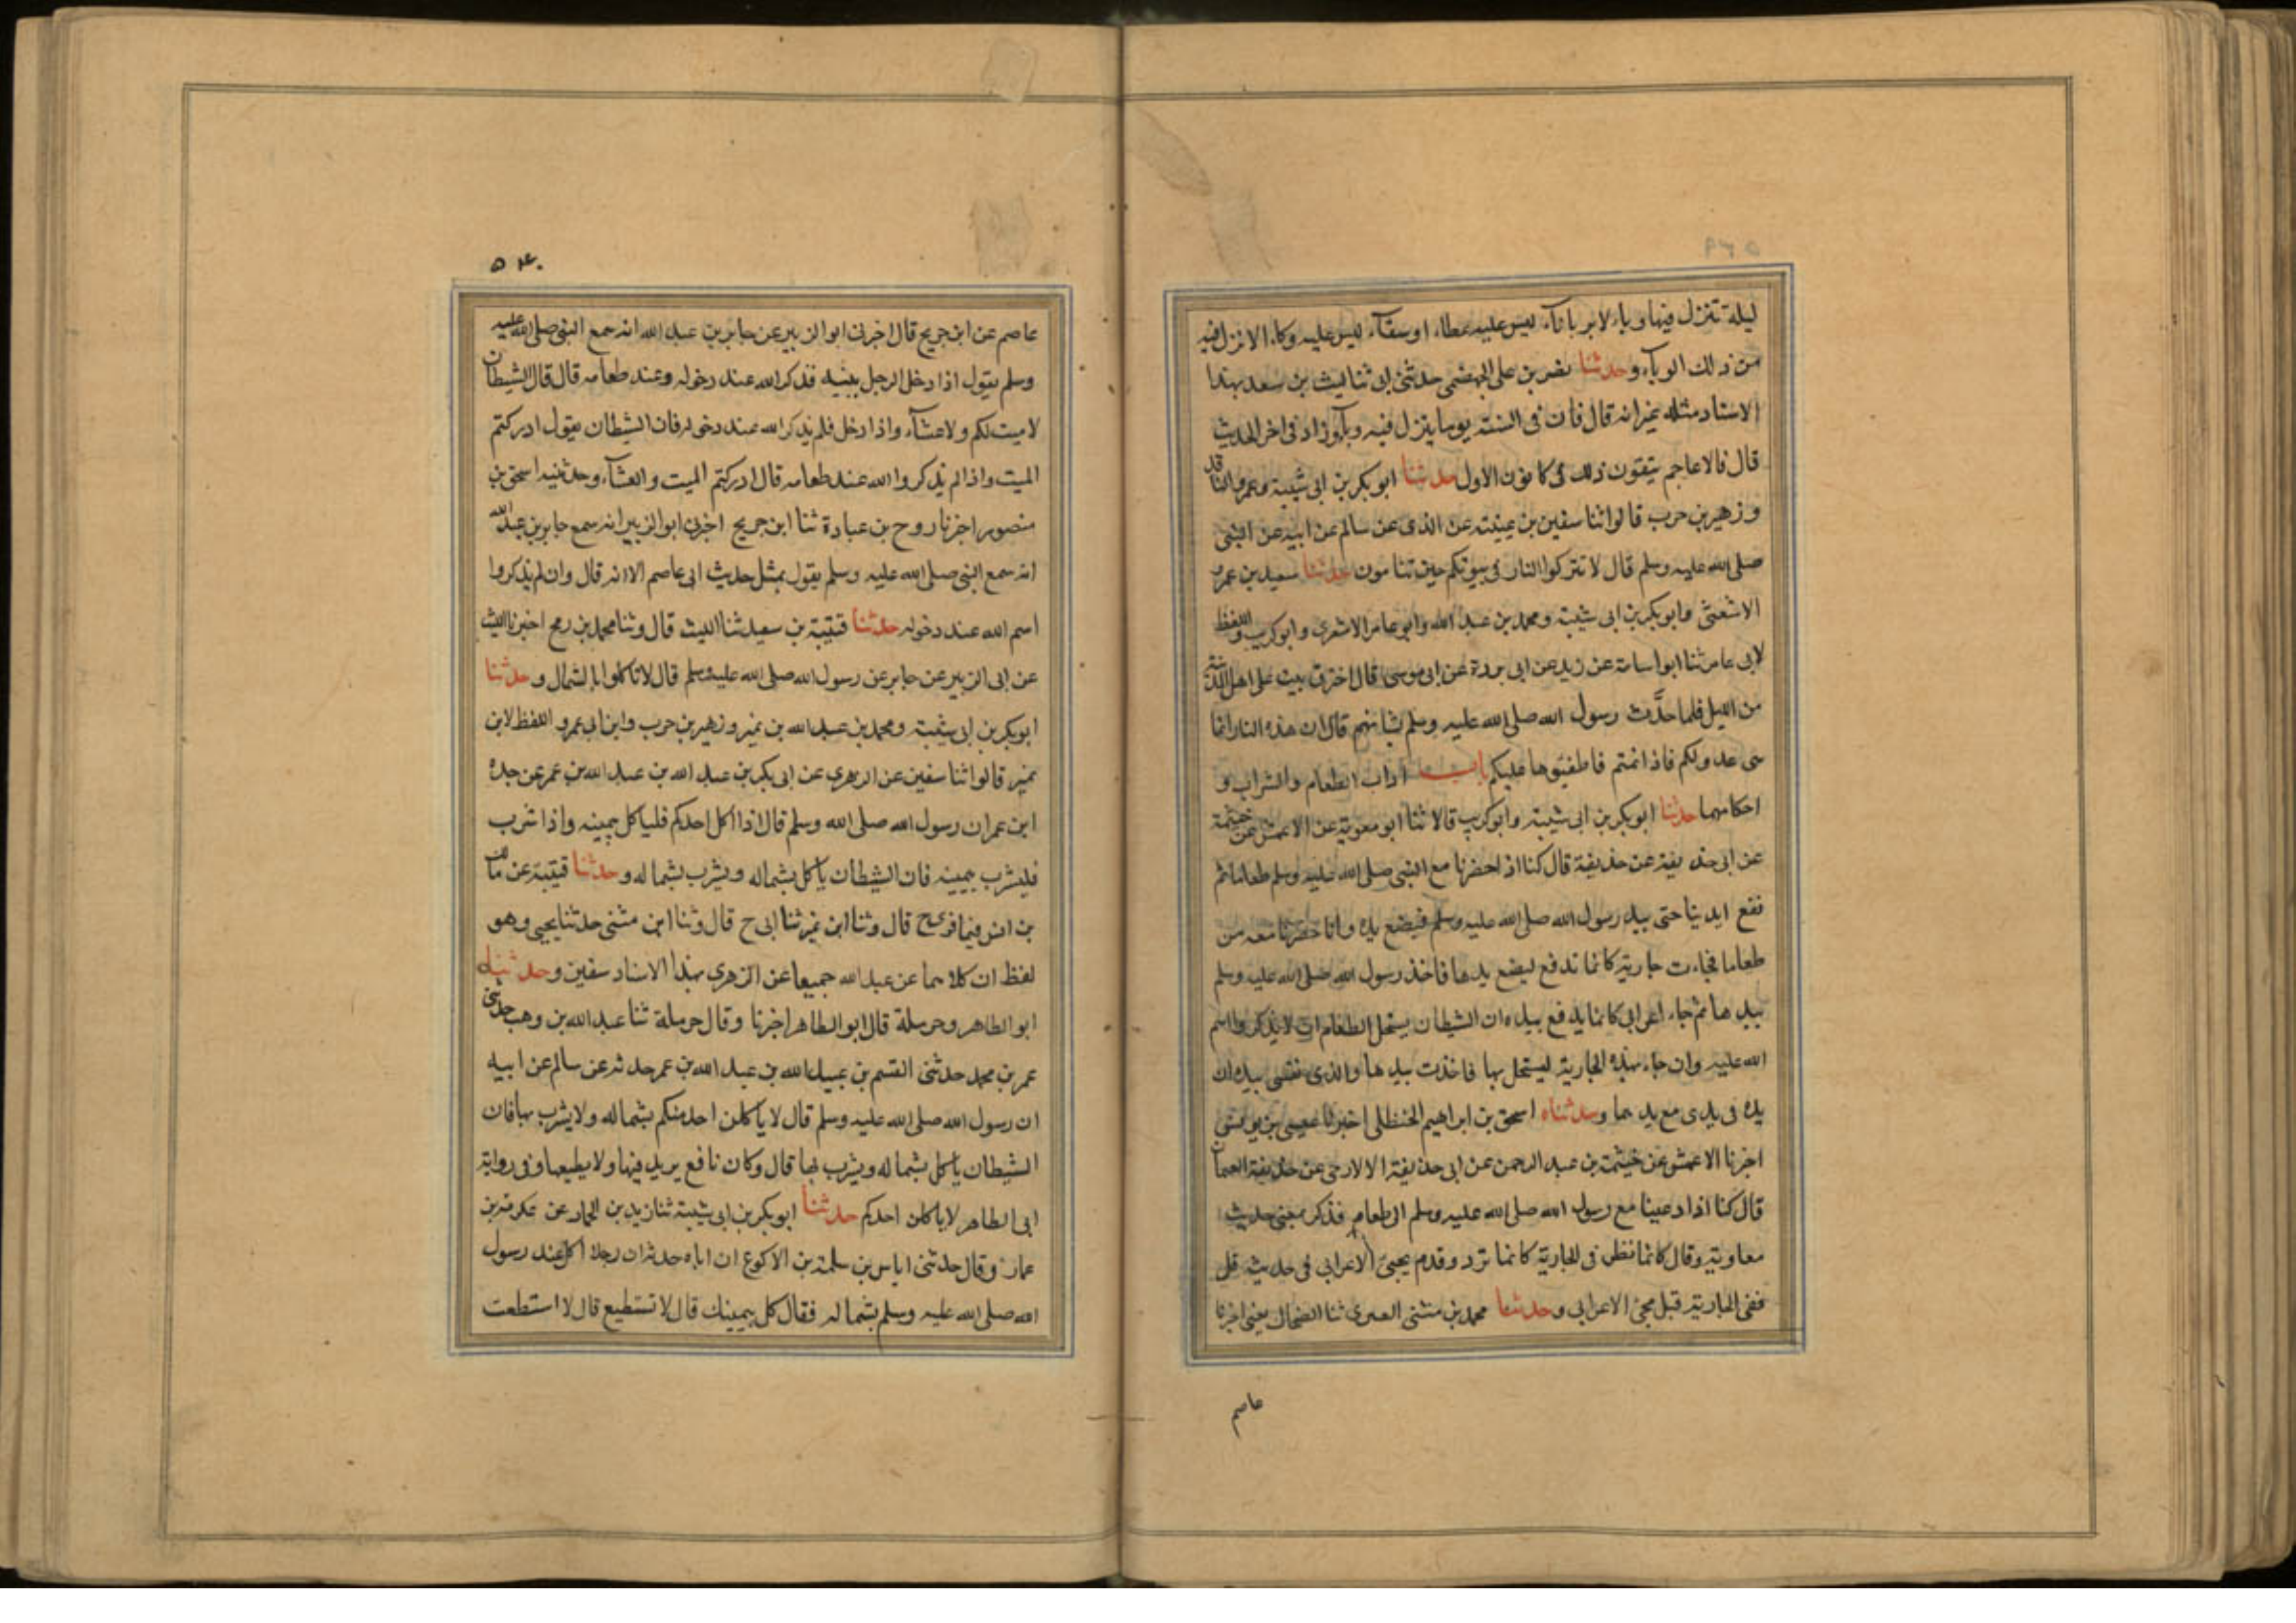 ليلة تنزل فيها وباء لا يمر باناء ليس عليه عطاء او سقاء ليس عليه وكاء الا نزل فيه
من ذلك الوباء وحدثنا نصر بن علي الجهضمي حدثني ابي ثنا ليث بن سعد بهذا
الاسناد مثله غير انه قال فان في السنة يوما ينزل فيه وباء وزاد في اخر الحديث
قال فالاعاجم يتقون ذلك في كانون الاول حدثنا ابو بكر بن ابي شيبة وعمرو الناقد
وزهير بن حرب قالوا ثنا سفين بن عيينة عن الذي عن سالم عن ابيه عن النبي
صلى الله عليه وسلم قال لا تتركوا النار في بيوتكم حين تنامون حدثنا سعيد بن عمرو
الاشعثي وابو بكر بن ابي شيبة ومحمد بن عبد الله وابو عامر الاشعري وابو كريب واللفظ
لابي عامر ثنا ابو اسامة عن زيد عن ابي بردة عن ابي موسى قال اخترق بيت على اهل المدينة
من الليل فلما حدث رسول الله صلى الله عليه وسلم بشانهم قال ان هذه النار انما
هي عدو لكم فاذا نمتم فاطفئوها عليكم باب اداب الطعام والشراب و
احكامهما حدثنا ابو بكر بن ابي شيبة وابو كريب قالا ثنا ابو معوية عن الاعمش عن خيثمة
عن ابي حذيفة عن حذيفة قال كنا اذا حضرنا مع النبي صلى الله عليه وسلم طعاما لم
نضع ايدينا حتى يبد رسول الله صلى الله عليه وسلم فيضع يده وانا حضرنا معه من
طعاما فجاءت جارية كانما تدفع ليضع يدها فاخذ رسول الله صلى الله عليه وسلم
بيدها ثم جاء اعرابي كانما يدفع بيده ان الشيطان يستحل الطعام ان لا يذكروا اسم
الله عليه وان جاء بهذه الجارية ليستحل بها فاخذت بيدها والذي نفسي بيده ان
يده في يدي مع يدهما وحدثناه اسحق بن ابراهيم الحنظلي اخبرنا عيسى بن يونس
اخبرنا الاعمش عن خيثمة بن عبد الرحمن عن ابي حذيفة الارحبي عن حذيفة اليمان
قال كنا اذا دعينا مع رسول الله صلى الله عليه وسلم الى طعام فذكر بمعنى حديث ا
معاوية وقال كانما تطرد في الجارية كانما تزد وقدم يجيئ الاعرابي في حديثه قبل
ففي الجارية قبل مجئ الاعرابي وحدثنا محمد بن مثنى العنبري ثنا الضحاك يعني اخبرنا
عاصم
۵۴۰
عاصم عن ابن جريج قال اخبرني ابو الزبير عن جابر بن عبد الله انه سمع النبي صلى الله عليه
وسلم يقول اذا دخل الرجل بيته فذكر الله عند دخوله وعند طعامه قال قال الشيطان
لا مبيت لكم ولا عشاء واذا دخل فلم يذكر الله عند دخوله فان الشيطان يقول ادركتم
المبيت واذا لم يذكروا الله عند طعامه قال ادركتم المبيت والعشاء وحدثنيه اسحق بن
منصور اخبرنا روح بن عبادة ثنا ابن جريج اخبرني ابو الزبير انه سمع جابر بن عبد الله
انه سمع النبي صلى الله عليه وسلم يقول بمثل حديث ابي عاصم الا انه قال وان لم يذكروا
اسم الله عند دخوله حدثنا قتيبة بن سعيد ثنا الليث قال وثنا محمد بن رمح اخبرنا الليث
عن ابي الزبير عن جابر عن رسول الله صلى الله عليه وسلم قال لا تاكلوا بالشمال وحدثنا
ابو بكر بن ابي شيبة ومحمد بن عبد الله بن نمير وزهير بن حرب وابن ابي عمر واللفظ لابن
نمير قالوا ثنا سفين عن الزهري عن ابي بكر بن عبد الله بن عبد الله بن عمر عن جده
ابن عمر ان رسول الله صلى الله وسلم قال اذا اكل احدكم فلياكل بيمينه واذا شرب
فليشرب بيمينه فان الشيطان ياكل بشماله ويشرب بشماله وحدثنا قتيبة عن مالك
بن انس فيما قرئ ح قال وثنا ابن نمير ثنا ابي ح قال وثنا ابن مثنى حدثنا يحيى وهو
لفظ ان كلاهما عن عبد الله جميعا عن الزهري بهذا الاسناد سفين وحدثنيه
ابو الطاهر وحرملة قال ابو الطاهر اخبرنا وقال حرملة ثنا عبد الله بن وهب حدثني
عمر بن محمد حدثني القسم بن عبيد الله بن عبد الله بن عمر حدثه عن سالم عن ابيه
ان رسول الله صلى الله عليه وسلم قال لا ياكلن احد منكم بشماله ولا يشرب بها فان
الشيطان ياكل بشماله ويشرب بها قال وكان نافع يزيد فيها ولا يعطيها وفي رواية
ابي الطاهر لا ياكلن احدكم حدثنا ابو بكر بن ابي شيبة ثنا زيد بن الحباب عن عكرمة بن
عمار وقال حدثني اياس بن سلمة بن الاكوع ان اباه حدثه ان رجلا اكل عند رسول
الله صلى الله عليه وسلم بشماله فقال كل بيمينك قال لا تستطيع قال لا استطعت